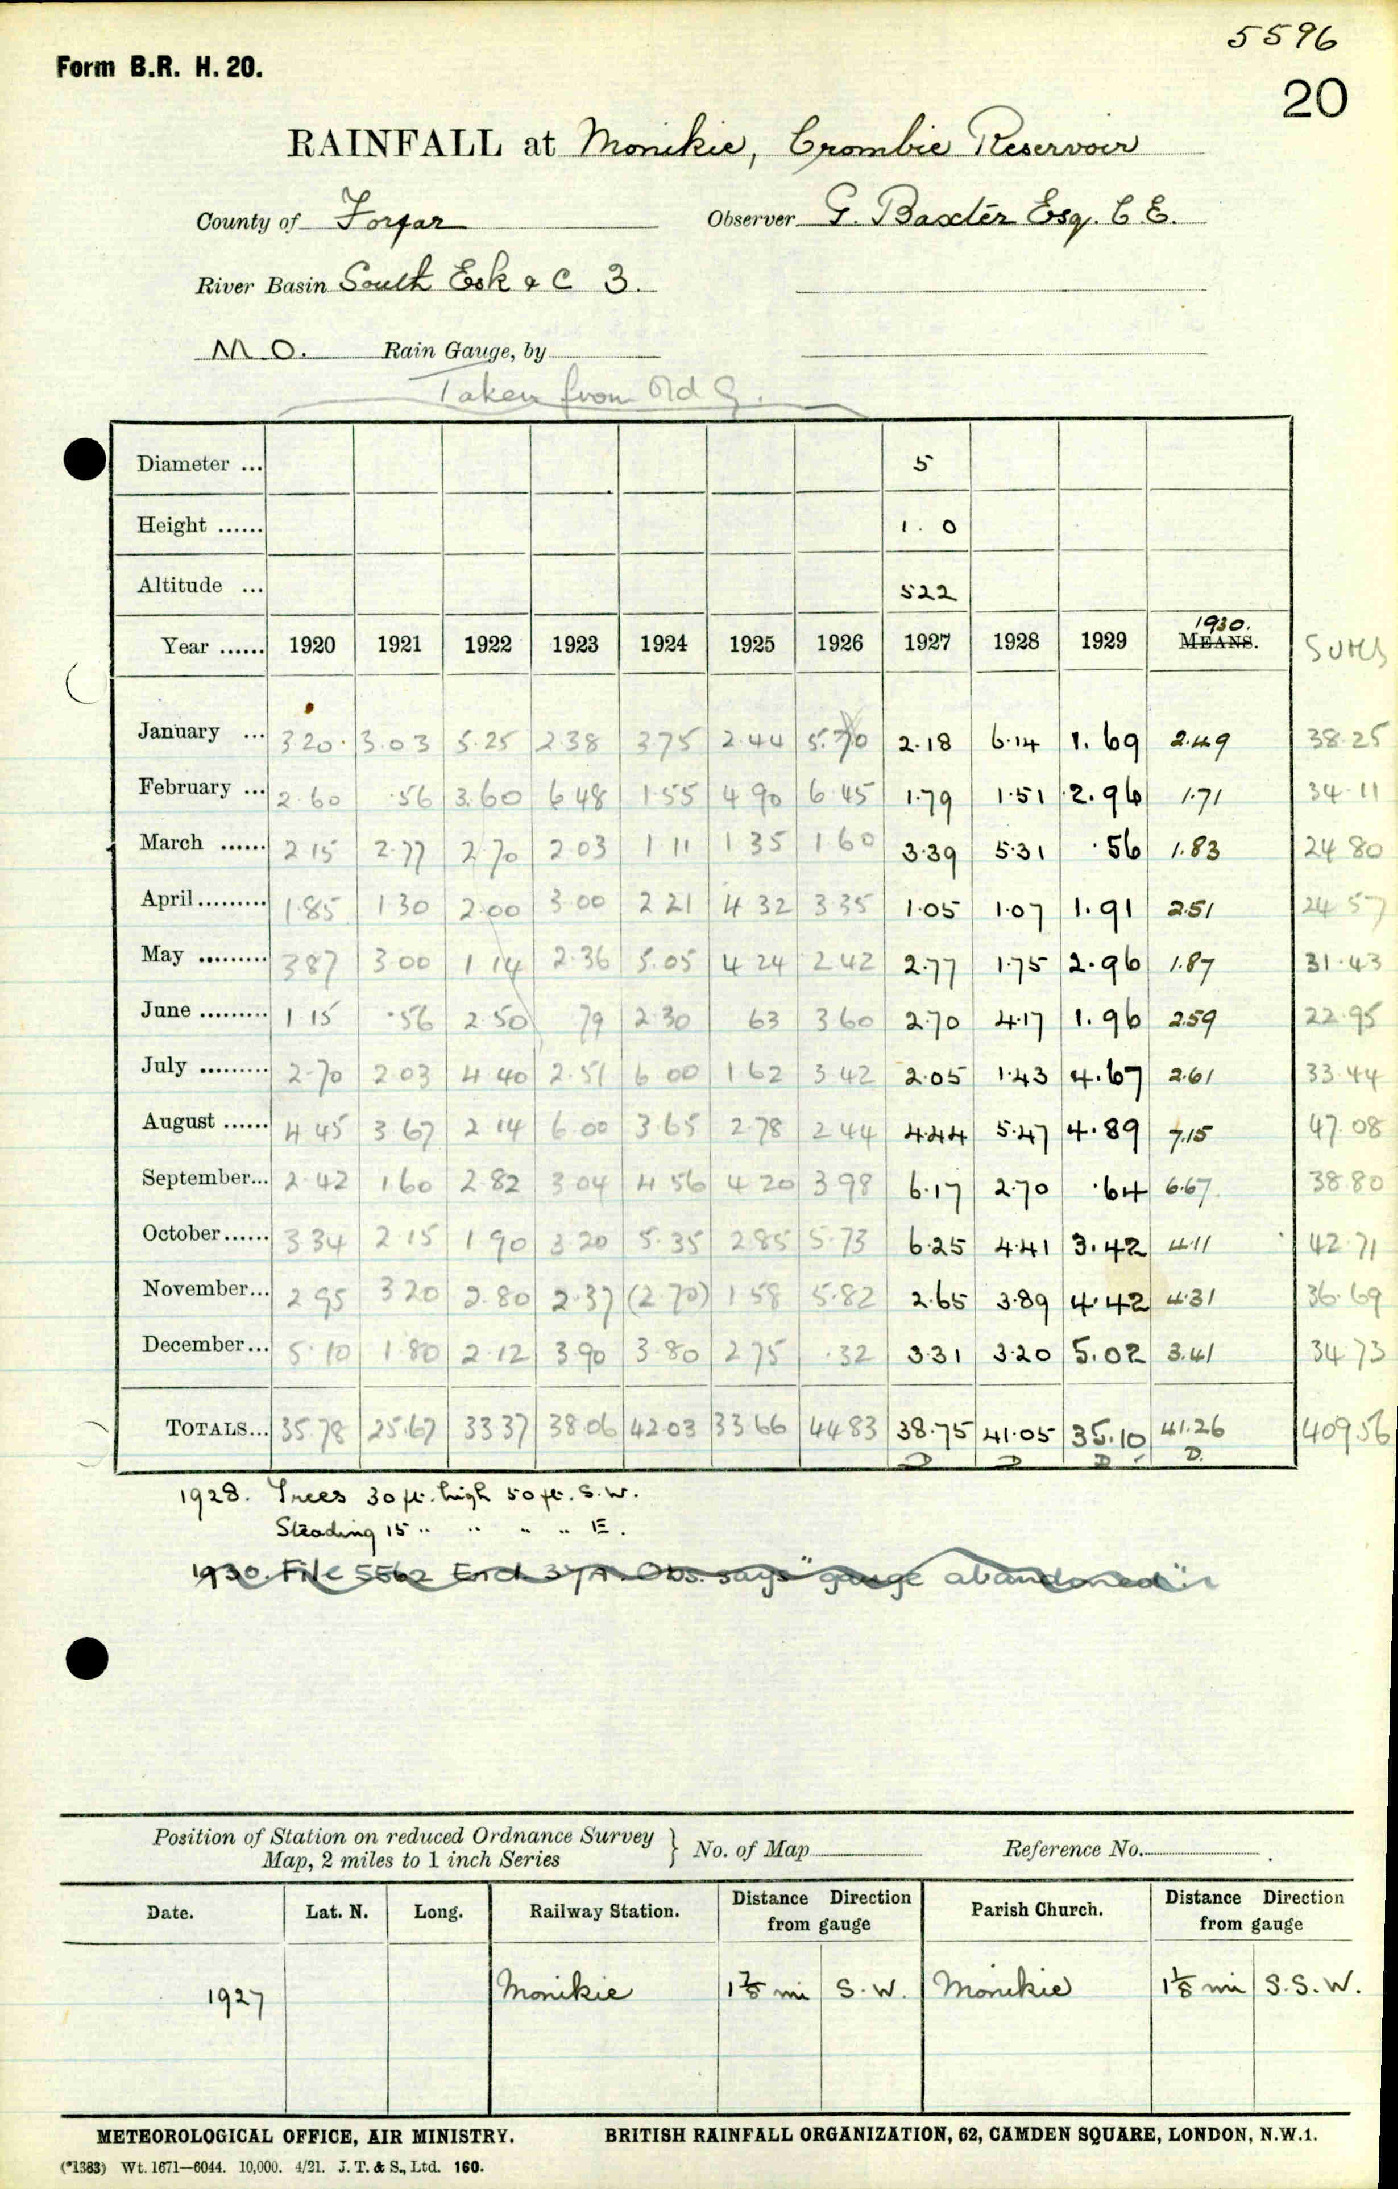 5596
Form B.R. H. 20.
20
RAINFALL at Monikie, Crombie Reservoir
County of Forfar Observer G. Baxter Esq. C E.
River Basin South Esk & C 3.
M O. Rain Gauge, by
Taken from Old G.
Diameter ... 5
Height ...... 1. 0
Altitude ... 522
1930.
Year ...... 1920 1921 1922 1923 1924 1925 1926 1927 1928 1929 MEANS. SUMS
January ... 3.20 3.03 5.25 2.38 3.75 2.44 5.70 2.18 6.14 1.69 2.49 38.25
February ... 2.60 .56 3.60 6.48 1.55 4.90 6.45 1.79 1.51 2.96 1.71 34.11
March ...... 2.15 2.77 2.70 2.03 1.11 1.35 1.60 3.39 5.31 .56 1.83 24.80
April......... 1.85 1.30 2.00 3.00 2.21 4.32 3.35 1.05 1.07 1.91 2.51 24.57
May ......... 3.87 3.00 1.14 2.36 5.05 4.24 2.42 2.77 1.75 2.96 1.87 31.43
June ......... 1.15 .56 2.50 .79 2.30 .63 3.60 2.70 4.17 1.96 2.59 22.95
July ......... 2.70 2.03 4.40 2.51 6.00 1.62 3.42 2.05 1.43 4.67 2.61 33.44
August ...... 4.45 3.67 2.14 6.00 3.65 2.78 2.44 4.44 5.47 4.89 7.15 47.08
September... 2.42 1.60 2.82 3.04 4.56 4.20 3.98 6.17 2.70 .64 6.67 38.80
October...... 3.34 2.15 1.90 3.20 5.35 2.85 5.73 6.25 4.41 3.42 4.11 42.71
November... 2.95 3.20 2.80 2.37 (2.70) 1.58 5.82 2.65 3.89 4.42 4.31 36.69
December... 5.10 1.80 2.12 3.90 3.80 2.75 .32 3.31 3.20 5.02 3.41 34.73
TOTALS... 35.78 25.67 33.37 38.06 42.03 33.66 44.83 38.75 41.05 35.10 41.26 409.56
D D D D.
1928. Trees 30 ft. high 50 ft. S.W.
Steading 15 " " " " E.
1930. File 5562 Encl 37A. Obs. says "gauge abandoned"
Position of Station on reduced Ordnance Survey
Map, 2 miles to 1 inch Series } No. of Map Reference No.
Date. Lat. N. Long. Railway Station. Distance Direction from gauge Parish Church. Distance Direction from gauge
1927 Monikie 1⅞ mi S.W. Monikie 1⅛ mi S.S.W.
METEOROLOGICAL OFFICE, AIR MINISTRY. BRITISH RAINFALL ORGANIZATION, 62, CAMDEN SQUARE, LONDON, N.W.1.
(*1383) Wt. 1671—6044. 10,000. 4/21. J. T. & S., Ltd. 160.